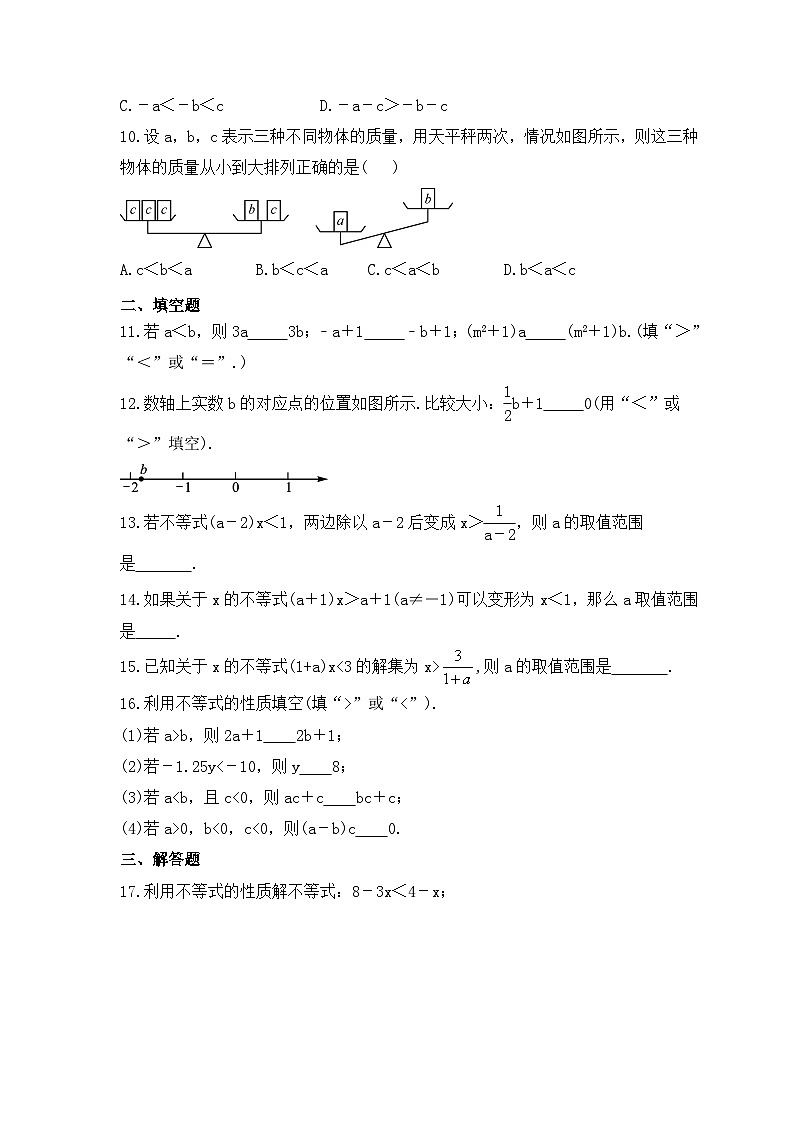 C.－a＜－b＜c D.－a－c＞－b－c
10.设a，b，c表示三种不同物体的质量，用天平秤两次，情况如图所示，则这三种
物体的质量从小到大排列正确的是( )
c c c b c a b
A.c＜b＜a B.b＜c＜a C.c＜a＜b D.b＜a＜c
二、填空题
11.若a＜b，则3a_____3b；﹣a＋1_____﹣b＋1；(m²＋1)a_____(m²＋1)b.(填“＞”
“＜”或“＝”.)
12.数轴上实数b的对应点的位置如图所示.比较大小：1/2b＋1_____0(用“＜”或
“＞”填空).
b
－2 －1 0 1
13.若不等式(a－2)x＜1，两边除以a－2后变成x＞1/(a－2)，则a的取值范围
是_______.
14.如果关于x的不等式(a＋1)x＞a＋1(a≠－1)可以变形为x＜1，那么a取值范围
是_____.
15.已知关于x的不等式(1+a)x<3的解集为x>3/(1+a),则a的取值范围是_______.
16.利用不等式的性质填空(填“>”或“<”).
(1)若a>b，则2a＋1____2b＋1；
(2)若－1.25y<－10，则y____8；
(3)若a<b，且c<0，则ac＋c____bc＋c；
(4)若a>0，b<0，c<0，则(a－b)c____0.
三、解答题
17.利用不等式的性质解不等式：8－3x＜4－x；